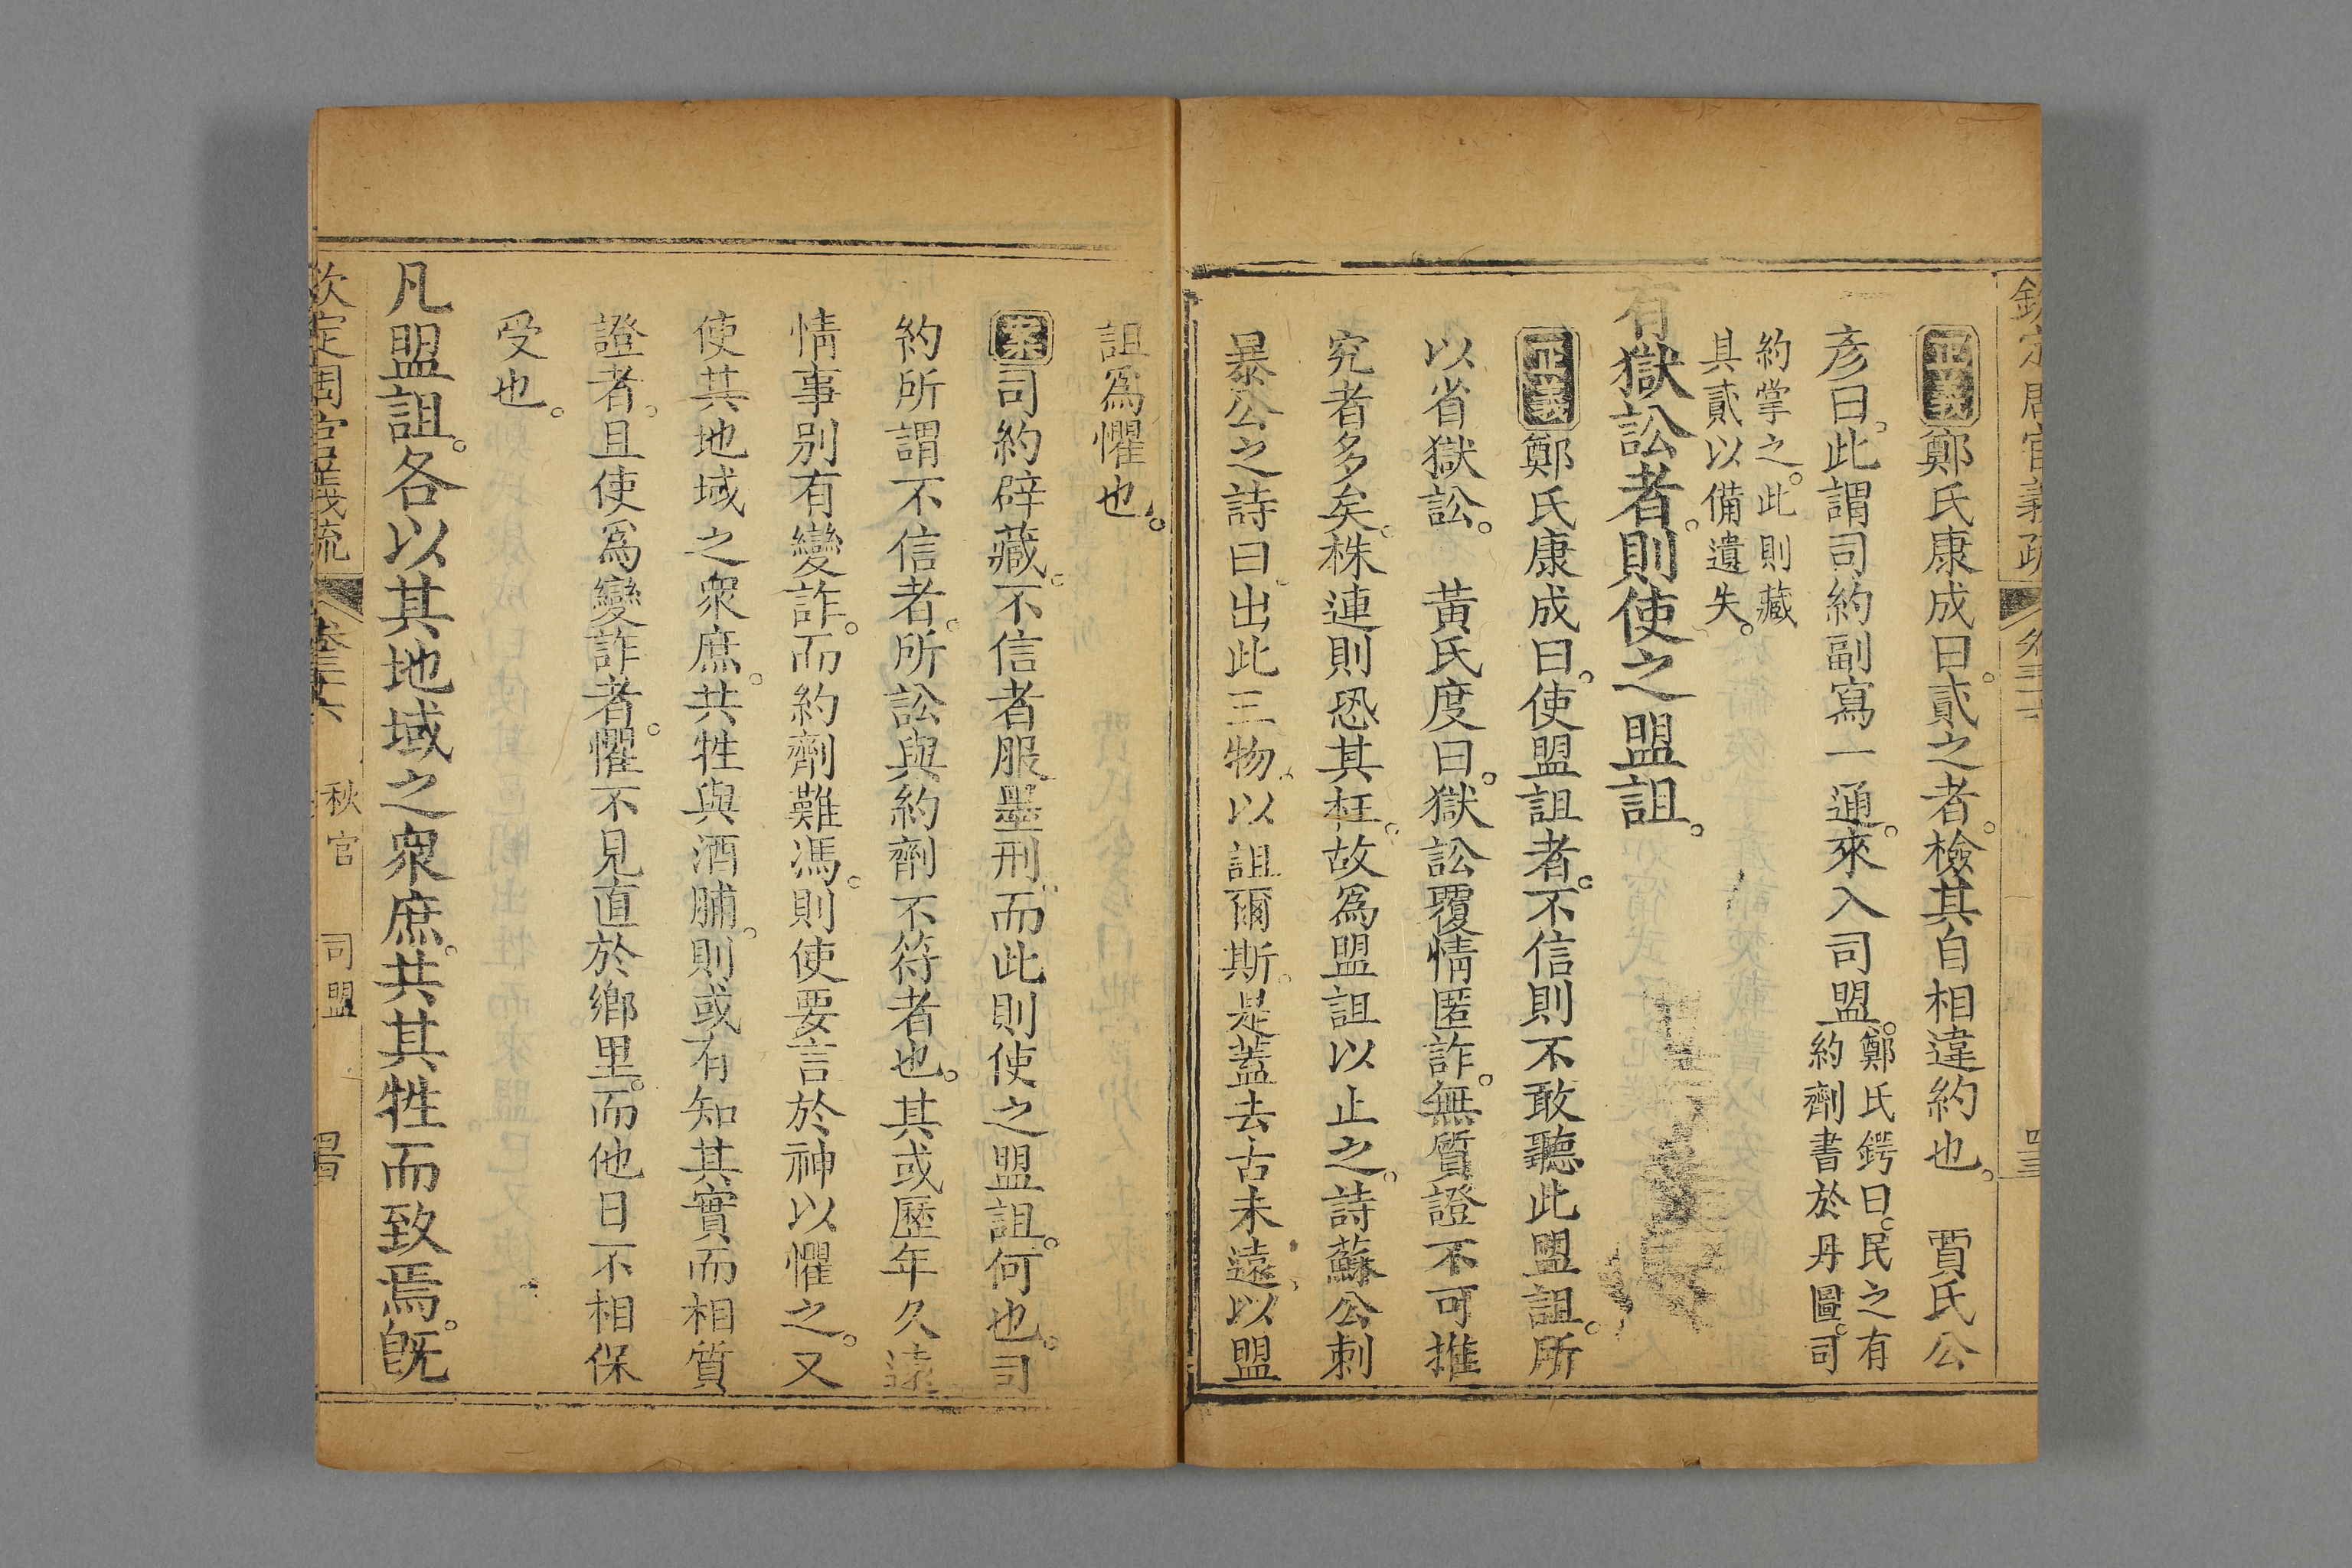 欽定周官義疏 卷三十六
正義鄭氏康成曰。貳之者。檢其自相違約也。 賈氏公
彥曰。此謂司約副寫一通。來入司盟。鄭氏鍔曰。民之有約劑書於丹圖。司
約掌之。此則藏其貳以備遺失。
有獄訟者。則使之盟詛。
正義鄭氏康成曰。使盟詛者。不信則不敢聽此盟詛。所
以省獄訟。 黃氏度曰。獄訟覆情匿詐。無質證不可推
究者多矣。株連則恐其枉。故爲盟詛以止之。詩蘇公刺
暴公之詩曰。出此三物。以詛爾斯。是蓋去古未遠。以盟
詛爲懼也。
案司約辟藏。不信者服墨刑。而此則使之盟詛。何也。司
約所謂不信者。所訟與約劑不符者也。其或歷年久遠
情事別有變詐。而約劑難馮。則使要言於神以懼之。又
使其地域之衆庶。共牲與酒脯。則或有知其實而相質
證者。且使爲變詐者。懼不見直於鄉里。而他日不相保
受也。
凡盟詛。各以其地域之衆庶。共其牲而致焉。旣
欽定周官義疏 卷三十六 秋官 司盟